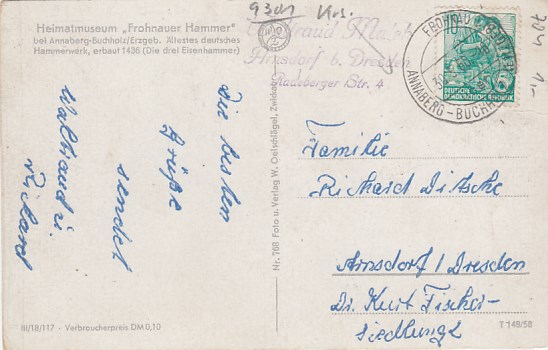 9301 Krs.
Heimatmuseum „Frohnauer Hammer"
bei Annaberg-Buchholz/Erzgeb. Ältestes deutsches
Hammerwerk, erbaut 1436 (Die drei Eisenhammer)
Die besten
Grüße
sendet
Waltraud u.
Richard
III/18/117 - Verbraucherpreis DM 0,10
Nr. 768 Foto u. Verlag W. Oelschlägel, Zwickau
Arnsdorf b. Dresden
Radeberger Str. 4
ANNABERG - BUCHH
DEUTSCHE
DEMOKRATISCHE REPUBLIK
Familie
Richard Ditsche
Arnsdorf/Dresden
Dr. Kurt Fischer-
siedlung 2
T 148/58